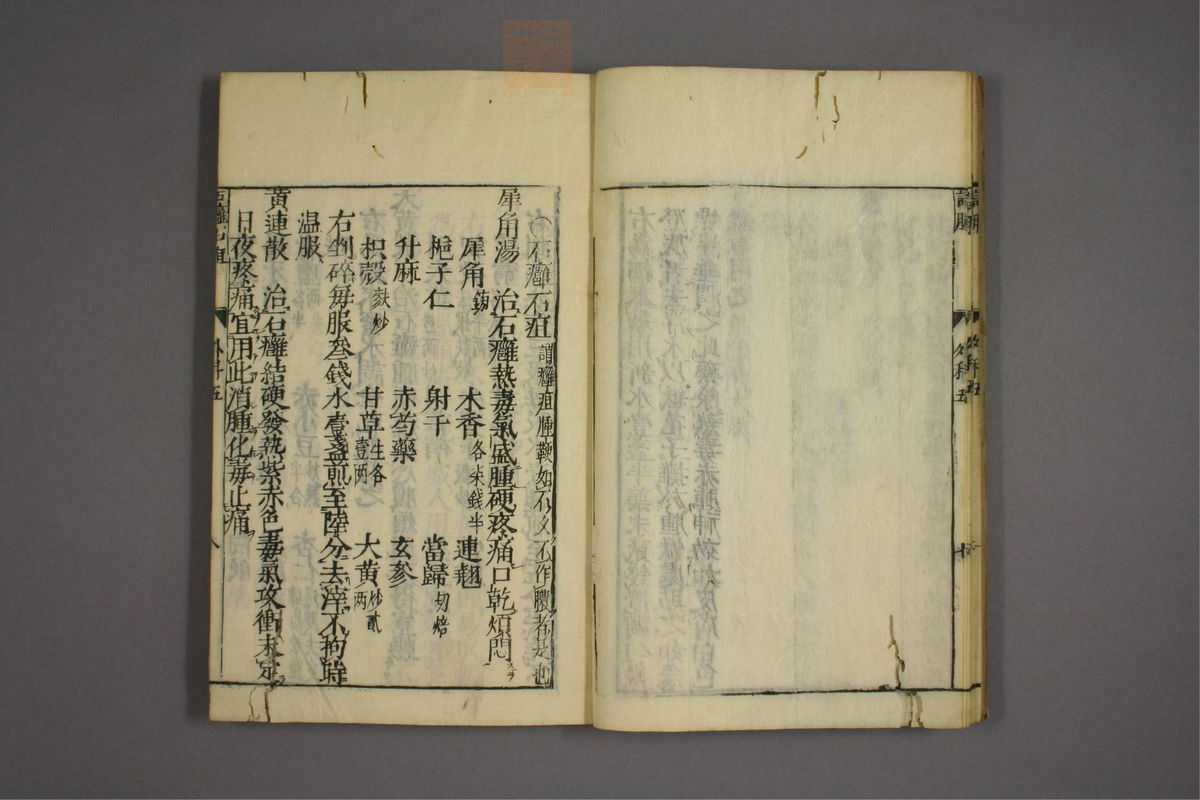 〇石癰石疽 謂癰疽腫鞕如石久不作膿者是也
犀角湯 治石癰熱毒氣盛腫硬疼痛口乾煩悶
犀角鎊 木香各柒錢半 連翹
梔子仁 射干 當歸切焙
升麻 赤芍藥 玄參
枳殼麩炒 甘草生各壹两 大黄炒貳两
右剉碎每服叁錢水壹盞煎至陸分去滓不拘時
温服
黄連散 治石癰結硬發熱紫赤色毒氣攻衝未定
日夜疼痛宜用此消腫化毒止痛
外科五
外科五